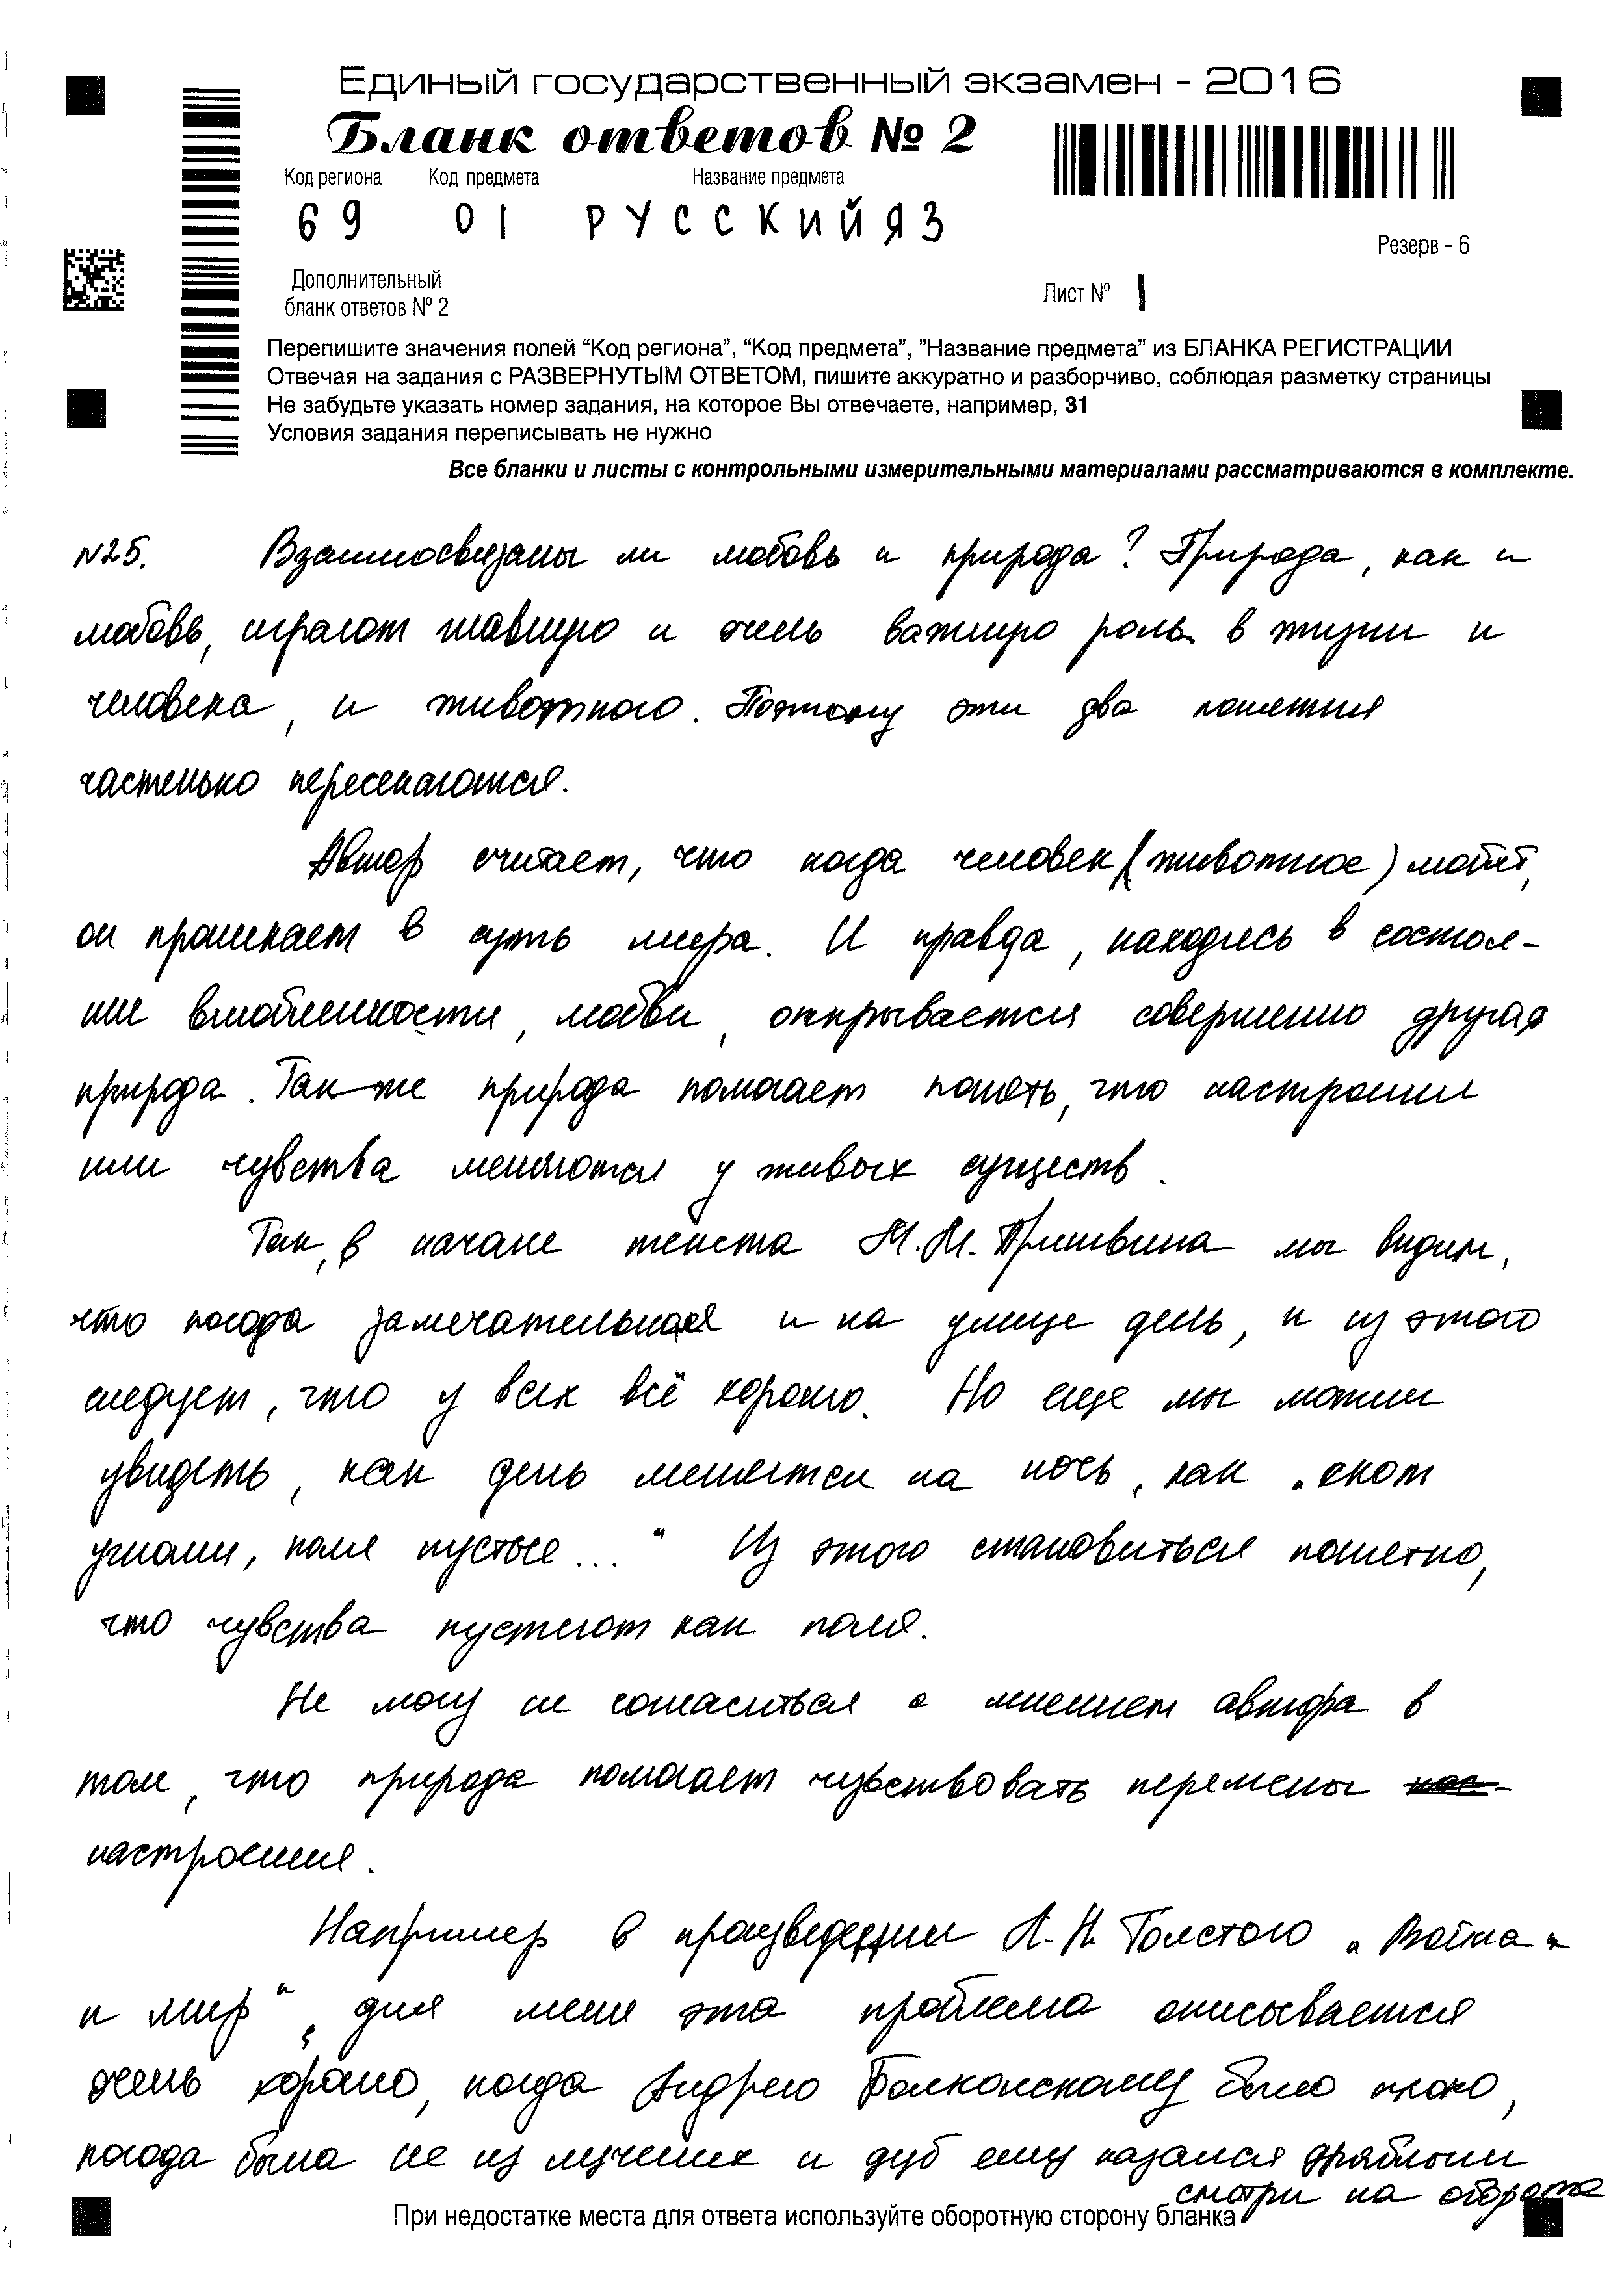 Единый государственный экзамен - 2016
Бланк ответов № 2
Код региона Код предмета Название предмета
69 01 РУССКИЙ ЯЗ
Резерв - 6
Дополнительный
бланк ответов № 2
Лист № 1
Перепишите значения полей "Код региона", "Код предмета", "Название предмета" из БЛАНКА РЕГИСТРАЦИИ
Отвечая на задания с РАЗВЕРНУТЫМ ОТВЕТОМ, пишите аккуратно и разборчиво, соблюдая разметку страницы
Не забудьте указать номер задания, на которое Вы отвечаете, например, 31
Условия задания переписывать не нужно
Все бланки и листы с контрольными измерительными материалами рассматриваются в комплекте.
№25. Взаимосвязаны ли любовь и природа? Природа, как и
любовь, играют главную и очень важную роль в жизни и
человека, и животного. Поэтому эти два понятия
частенько пересекаются.
Автор считает, что когда человек (животное) любят,
он проникает в суть мира. И правда, находясь в состоя-
нии влюбленности, любви, открывается совершенно другая
природа. Так же природа помогает понять, что настроения
или чувства меняются у живых существ.
Так, в начале текста М.М. Пришвина мы видим,
что погода замечательная и на улице день, и из этого
следует, что у всех всё хорошо. Но еще мы можем
увидеть, как день меняется на ночь, как „скот
угнали, поля пустые..." Из этого становиться понятно,
что чувства пустеют как поля.
Не могу не согласиться с мнением автора в
том, что природа помогает чувствовать перемены
настроения.
Например в произведении Л.Н. Толстого „Война
и мир", для меня эта проблема описывается
очень хорошо, когда Андрею Болконскому было плохо,
погода была не из лучших и дуб ему казался дряблым
смотри на обороте
При недостатке места для ответа используйте оборотную сторону бланка